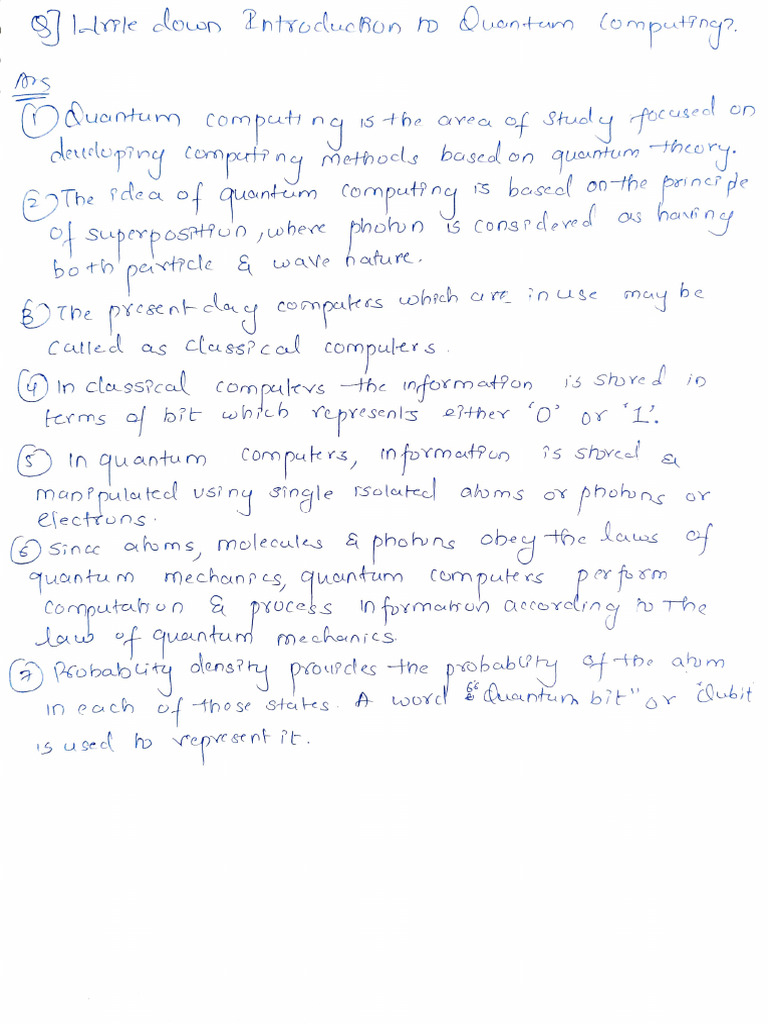 Q] Write down Introduction to Quantum Computing?.
Ans
① Quantum computing is the area of study focused on
developing computing methods based on quantum theory.
② The idea of quantum computing is based on the principle
of superposition, where photon is considered as having
both particle & wave nature.
③ The present day computers which are in use may be
called as classical computers.
④ In classical computers the information is stored in
terms of bit which represents either '0' or '1'.
⑤ In quantum computers, information is stored &
manipulated using single isolated atoms or photons or
electrons.
⑥ Since atoms, molecules & photons obey the laws of
quantum mechanics, quantum computers perform
computation & process information according to the
law of quantum mechanics.
⑦ Probability density provides the probability of the atom
in each of those states. A word "Quantum bit" or "Qubit
is used to represent it.